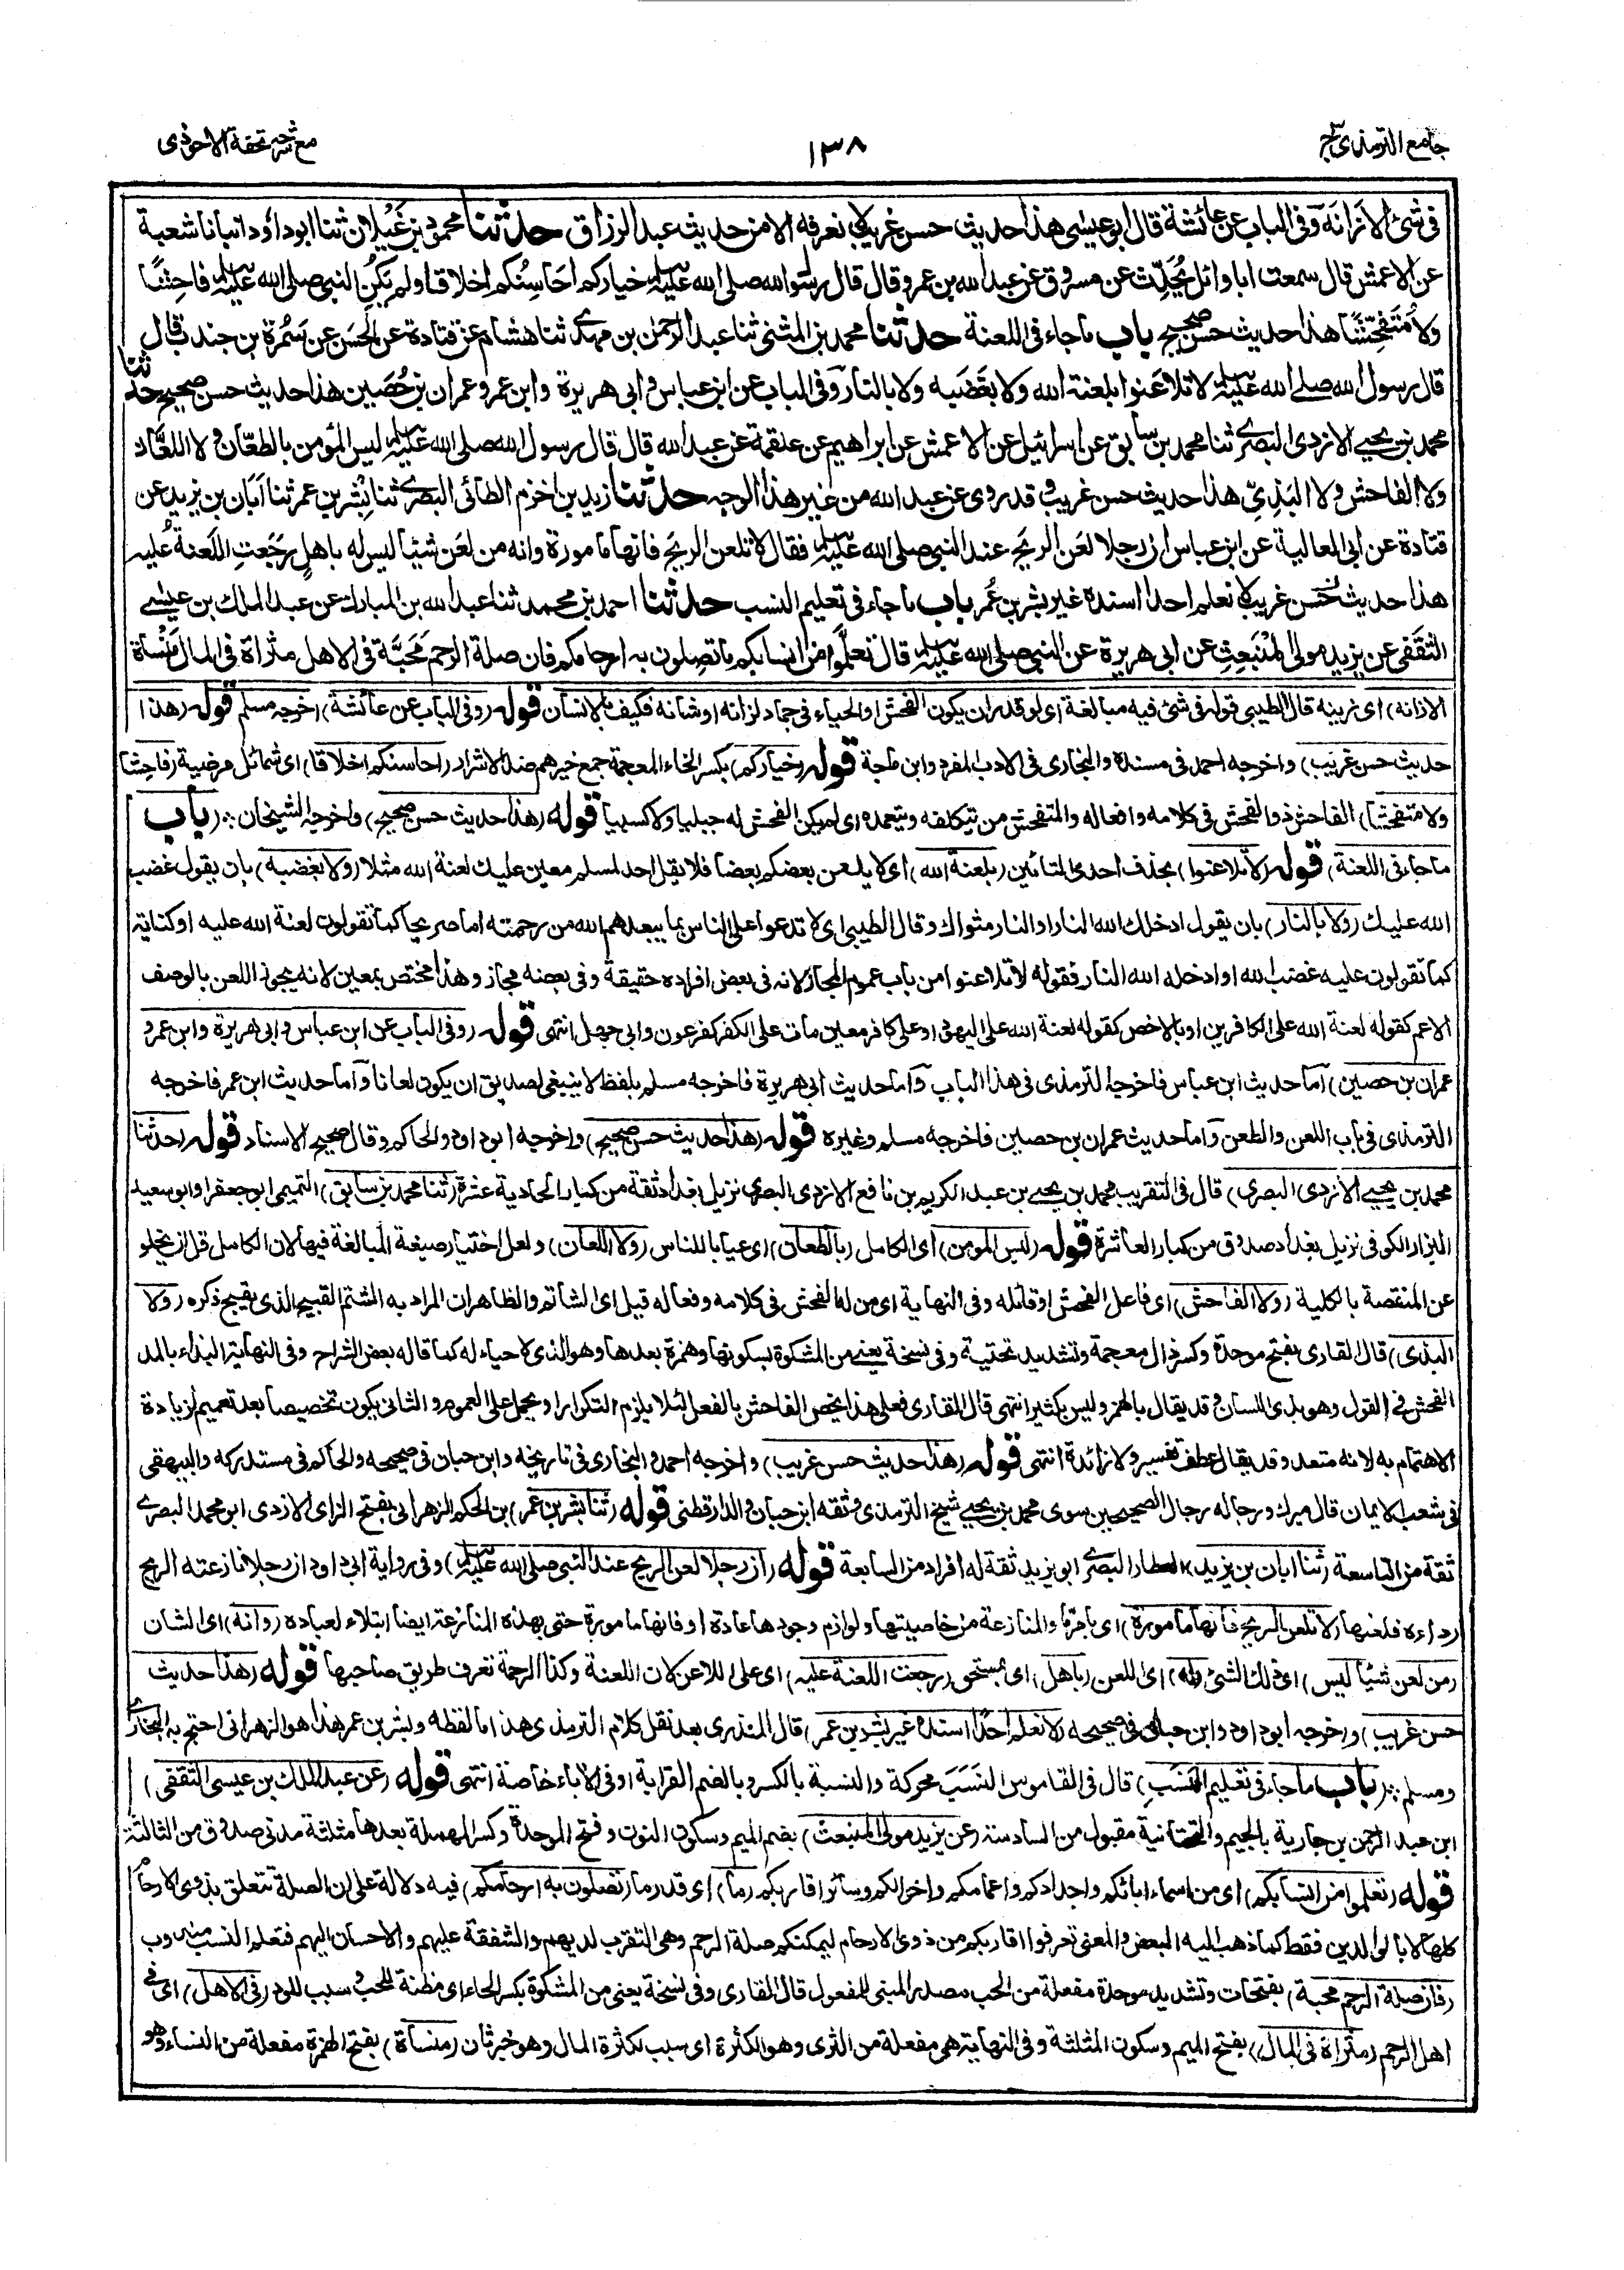 جامع الترمذی ج۳
۱۳۸
مع شرحه تحفة الاحوذی
فی شئ الا زانه وفی الباب عن عائشة قال ابو عیسی هذا حدیث حسن غریب لا نعرفه الا من حدیث عبد الرزاق حدثنا محمود بن غَیْلان ثنا ابو داود انبانا شعبة
عن الاعمش قال سمعت ابا وائل یُحَدِّث عن مسروق عن عبد الله بن عمرو قال قال رسول الله صلی الله علیه وسلم خیارکم احَاسِنُکم اخلاقا ولم یکنِ النبی صلی الله علیه وسلم فاحِشًا
ولا مُتفحِّشًا هذا حدیث حسن صحیح باب ما جاء فی اللعنة حدثنا محمد بن المثنی ثنا عبد الرحمٰن بن مهدی ثنا هشام عن قتادة عن الحسَن عن سَمُرة بن جندب قال
قال رسول الله صلی الله علیه وسلم لا تلاعَنوا بلعنة الله ولا بغَضَبه ولا بالنار وفی الباب عن ابن عباس وابی هریرة وابن عمر وعمران بن حُصَین هذا حدیث حسن صحیح حدثنا
محمد بن یحیی الازدی البصری ثنا محمد بن سابق عن اسرائیل عن الاعمش عن ابراهیم عن علقمة عن عبد الله قال قال رسول الله صلی الله علیه وسلم لیس المؤمن بالطعّان ولا اللعَّان
ولا الفاحش ولا البَذِیّ هذا حدیث حسن غریب وقد روی عن عبد الله من غیر هذا الوجه حدثنا زید بن اخزم الطائی البصری ثنا بِشْر بن عمر ثنا اَبَان بن یزید عن
قتادة عن ابی العالیة عن ابن عباس ان رجلا لعَن الریح عند النبی صلی الله علیه وسلم فقال لا تلعن الریح فانها مامورة وانه من لعَن شیئا لیس له باهلٍ رجَعتِ اللعنةُ علیه
هذا حدیث حسن غریب لا نعلم احدا اسنده غیر بشر بن عُمر باب ما جاء فی تعلیم النسب حدثنا احمد بن محمد ثنا عبد الله بن المبارك عن عبد الملك بن عیسی
الثقفی عن یزید مولی المُنْبَعِثِ عن ابی هریرة عن النبی صلی الله علیه وسلم قال تعلَّموا من انسابکم ما تَصِلون به ارحامکم فان صلة الرحم مَحَبَّة فی الاهل مثراة فی المال مَنْسأة
الا زانه) ای زینه قال الطیبی قوله فی شئ فیه مبالغة ای لو قدر ان یکون الفحش او الحیاء فی جماد لزانه او شانه فکیف بالانسان قوله (وفی الباب عن عائشة) اخرجه مسلم قوله (هذا
حدیث حسن غریب) واخرجه احمد فی مسنده والبخاری فی الادب المفرد وابن ماجة قوله (خیارکم) بکسر الخاء المعجمة جمع خیر هم ضد الاشرار (احاسنکم اخلاقا) ای شمائل مرضیة (فاحشا
ولا متفحشا) الفاحش ذو الفحش فی کلامه وافعاله والمتفحش من یتکلفه ویتعمده ای لم یکن الفحش له جبلیا ولا کسبیا قوله (هذا حدیث حسن صحیح) واخرجه الشیخان ؞ (باب
ما جاء فی اللعنة) قوله (لا تلاعنوا) بحذف احدی التائین (بلعنة الله) ای لا یلعن بعضکم بعضا فلا یقل احد لمسلم معین علیك لعنة الله مثلا (ولا بغضبه) بان یقول غضب
الله علیك (ولا بالنار) بان یقول ادخلك الله النار او النار مثواك وقال الطیبی ای لا تدعوا علی الناس بما یبعدهم الله من رحمته اما صریحا کما تقولون لعنة الله علیه او کنایة
کما تقولون علیه غضب الله او ادخله الله النار فقوله لا تلاعنوا من باب عموم المجاز لانه فی بعض افراده حقیقة وفی بعضه مجاز وهذا مختص بمعین لانه یجوز اللعن بالوصف
الاعم کقوله لعنة الله علی الکافرین او بالاخص کقوله لعنة الله علی الیهود او علی کافر معین مات علی الکفر کفرعون وابی جهل انتهی قوله (وفی الباب عن ابن عباس وابی هریرة وابن عمر و
عمران بن حصین) اما حدیث ابن عباس فاخرجه الترمذی فی هذا الباب واما حدیث ابی هریرة فاخرجه مسلم بلفظ لا ینبغی لصدیق ان یکون لعانا واما حدیث ابن عمر فاخرجه
الترمذی فی باب اللعن والطعن واما حدیث عمران بن حصین فاخرجه مسلم وغیره قوله (هذا حدیث حسن صحیح) واخرجه ابو داود والحاکم وقال صحیح الاسناد قوله (حدثنا
محمد بن یحیی الازدی البصری) قال فی التقریب محمد بن یحیی بن عبد الکریم بن نافع الازدی البصری نزیل بغداد ثقة من کبار الحادیة عشرة (ثنا محمد بن سابق) التمیمی ابو جعفر او ابو سعید
البزار الکوفی نزیل بغداد صدوق من کبار العاشرة قوله (لیس المؤمن) ای الکامل (بالطعان) ای عیابا للناس (ولا اللعان) ولعل اختیار صیغة المبالغة فیها لان الکامل قل ان یخلو
عن المنقصة بالکلیة (ولا الفاحش) ای فاعل الفحش او قائله وفی النهایة ای من له الفحش فی کلامه وفعاله قیل ای الشاتم والظاهر ان المراد به الشتم القبیح الذی یقبح ذکره (ولا
البذی) قال القاری بفتح موحدة وکسر ذال معجمة وتشدید تحتیة وفی نسخة یعنی من المشکوة بسکونها وهمزة بعدها وهو الذی لا حیاء له کما قاله بعض الشراح وفی النهایة البذاء بالمد
الفحش فی القول وهو بذی اللسان وقد یقال بالهمز ولیس بکثیر انتهی قال القاری فعلی هذا یخص الفاحش بالفعل لئلا یلزم التکرار او یحمل علی العموم والثانی یکون تخصیصا بعد تعمیم لزیادة
الاهتمام به لانه متعد وقد یقال عطف تفسیر ولا زائدة انتهی قوله (هذا حدیث حسن غریب) واخرجه احمد والبخاری فی تاریخه وابن حبان فی صحیحه والحاکم فی مستدرکه والبیهقی
فی شعب الایمان قال میرك ورجاله رجال الصحیحین سوی محمد بن یحیی شیخ الترمذی وثقه ابن حبان والدارقطنی قوله (ثنا بشر بن عمر) بن الحکم الزهرانی بفتح الزای الازدی ابو محمد البصری
ثقة من التاسعة (ثنا ابان بن یزید) العطار البصری ابو یزید ثقة له افراد من السابعة قوله (ان رجلا لعن الریح عند النبی صلی الله علیه وسلم) وفی روایة ابی داود ان رجلا نازعته الریح
رداءه فلعنها (لا تلعن الریح فانها مامورة) ای بامر ما والمنازعة من خاصیتها ولوازم وجودها عادة او فانها مامورة حتی بهذه المنازعة ایضا ابتلاء لعباده (وانه) ای الشان
(من لعن شیئا لیس) ای ذلك الشئ (له) ای اللعن (باهل) ای بمستحق (رجعت اللعنة علیه) ای علی اللاعن لان اللعنة وکذا الرحمة تعرف طریق صاحبها قوله (هذا حدیث
حسن غریب) واخرجه ابو داود وابن حبان فی صحیحه (لا نعلم احدا اسنده غیر بشر بن عمر) قال المنذری بعد نقل کلام الترمذی هذا ما لفظه وبشر بن عمر هذا هو الزهرانی احتج به البخاری
ومسلم ؞ (باب ما جاء فی تعلیم النسَبِ) قال فی القاموس النَسَبَ محرکة والنسبة بالکسر وبالضم القرابة او فی الاباء خاصة انتهی قوله (عن عبد الملك بن عیسی الثقفی)
ابن عبد الرحمن بن جاریة بالجیم والتحتانیة مقبول من السادسة (عن یزید مولی المنبعث) بضم المیم وسکون النون وفتح الموحدة وکسر المهملة بعدها مثلثة مدنی صدوق من الثالثة
قوله (تعلموا من انسابکم) ای من اسماء ابائکم واجدادکم واعمامکم واخوالکم وسائر اقاربکم (ما) ای قدر ما (تصلون به ارحامکم) فیه دلالة علی ان الصلة تتعلق بذوی الارحام
کلها لا بالوالدین فقط کما ذهب الیه البعض والمعنی تعرفوا اقاربکم من ذوی الارحام لیمکنکم صلة الرحم وهی التقرب لدیهم والشفقة علیهم والاحسان الیهم فتعلم النسب مندوب
(فان صلة الرحم محبة) بفتحات وتشدید موحدة مفعلة من الحب مصدر المبنی للمفعول قال القاری وفی نسخة یعنی من المشکوة بکسر الحاء ای مظنة للحب وسبب للود (فی الاهل) ای فی
اهل الرحم (مثراة فی المال) بفتح المیم وسکون المثلثة وفی النهایة هی مفعلة من الثری وهو الکثرة ای سبب لکثرة المال وهو خبر ثان (منسأة) بفتح الهمزة مفعلة من النساء وهو